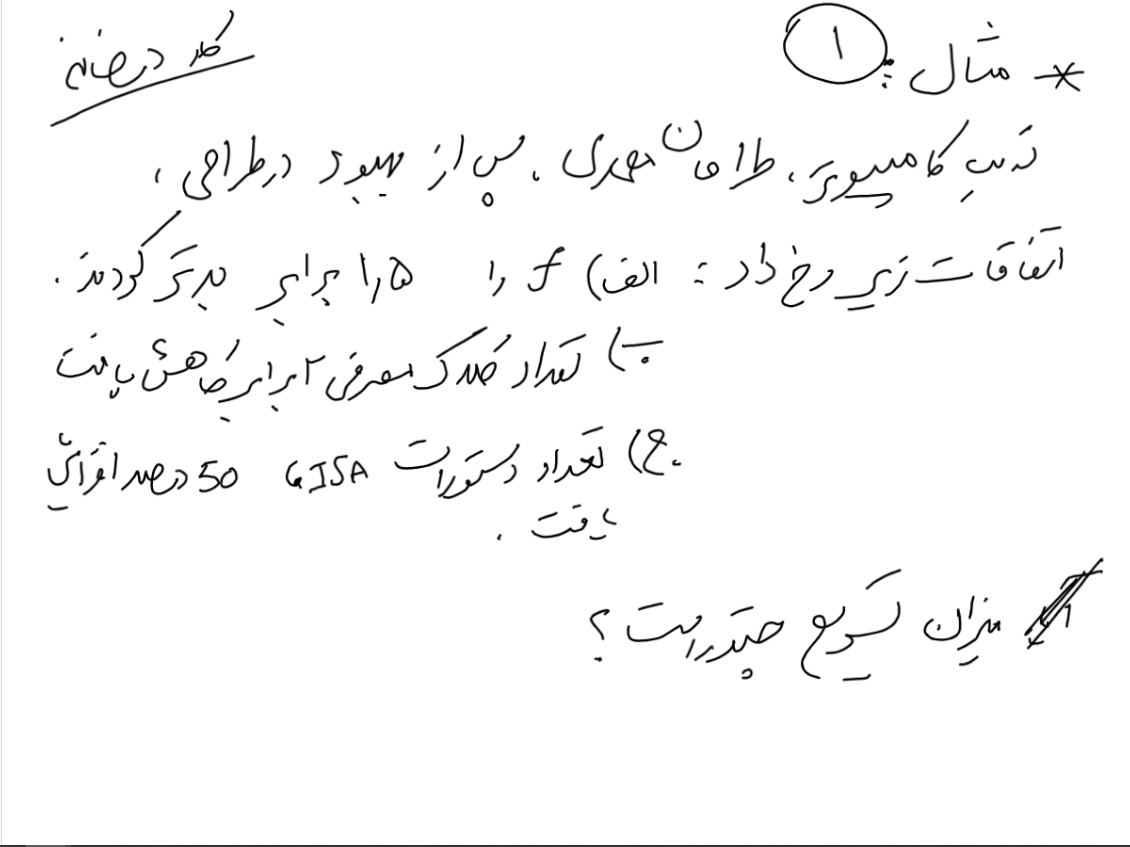 * مثال ۱ : کار در خانه
در یک کامپیوتر، طراحان معماری، پس از بهبود در طراحی،
اتفاقات زیر رخ داد : الف) f را ۱٫۵ برابر بزرگتر کردند.
ب) تعداد کلاک مصرفی ۲ برابر کاهش یافت
ج) تعداد دستورات ISA، 50 درصد افزایش
یافت.
میزان تسریع چقدر است؟